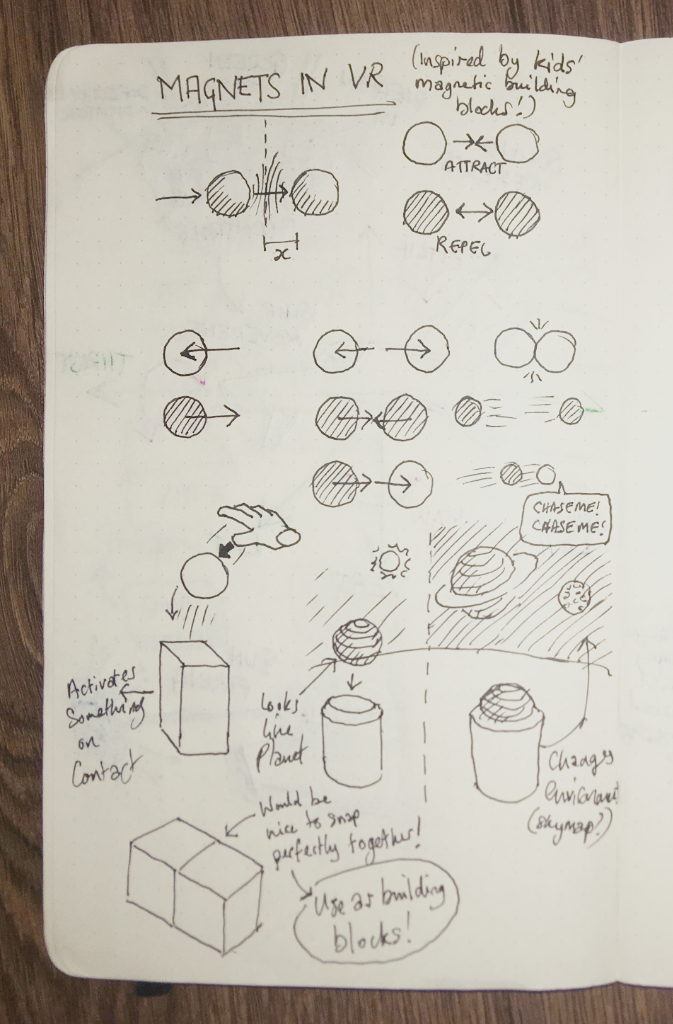 MAGNETS IN VR
(Inspired by kids'
magnetic building
blocks!)
ATTRACT
x
REPEL
CHASE ME!
CHASE ME!
Activates
Something
on
Contact
Looks
like
Planet
Changes
environment
(skymap?)
Would be
nice to snap
perfectly together!
Use as building
blocks!